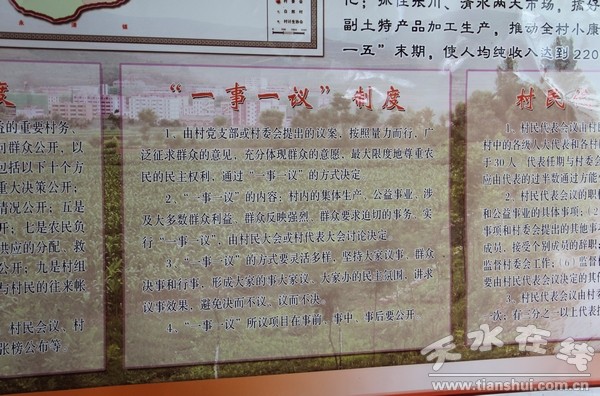 抓住东川、清水两大市场，
副土特产品加工生产，推动全村小康
一五”末期，使人均纯收入达到220
度
的重要村务，
向群众公开，以
包括以下十个方
重大决策公开；
情况公开；五是
开；七是农民负
供应的分配、救
公开；九是村组
与村民的往来帐
村民会议、村
张榜公布等
“一事一议”制度
1、由村党支部或村委会提出的议案，按照量力而行，广
泛征求群众的意见，充分体现群众的意愿，最大限度地尊重农
民的民主权利，通过“一事一议”的方式决定
2、“一事一议”的内容；村内的集体生产、公益事业、涉
及大多数群众利益、群众反映强烈、群众要求迫切的事务，实
行“一事一议”，由村民大会或村代表大会讨论决定
3、“一事一议”的方式要灵活多样，坚持大家议事、群众
决事和行事，形成大家的事大家议、大家办的民主氛围，讲求
议事效果，避免决而不议、议而不决
4、“一事一议”所议项目在事前、事中、事后要公开
村民
1、村民代表会议由村
村中的各级人大代表和各村
于30人 代表任期与村委会
应由代表的过半数通过方能
2、村民代表会议的职
和公益事业的具体事项；(2)
事项和村委会提出的其他事
成员，接受个别成员的辞职；
监督村委会工作；(6)
要由村民代表会议决定的其
3、村民代表会议由村
一次；有三分之一以上代表
天水在线
www.tianshui.com.cn